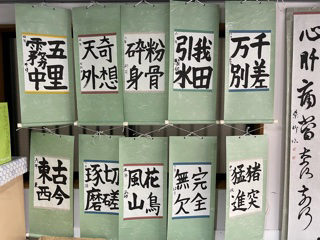 千差
万別
我田
引水
粉骨
砕身
奇想
天外
五里
霧中
猪突
猛進
完全
無欠
花鳥
風山
切磋
琢磨
古今
東西